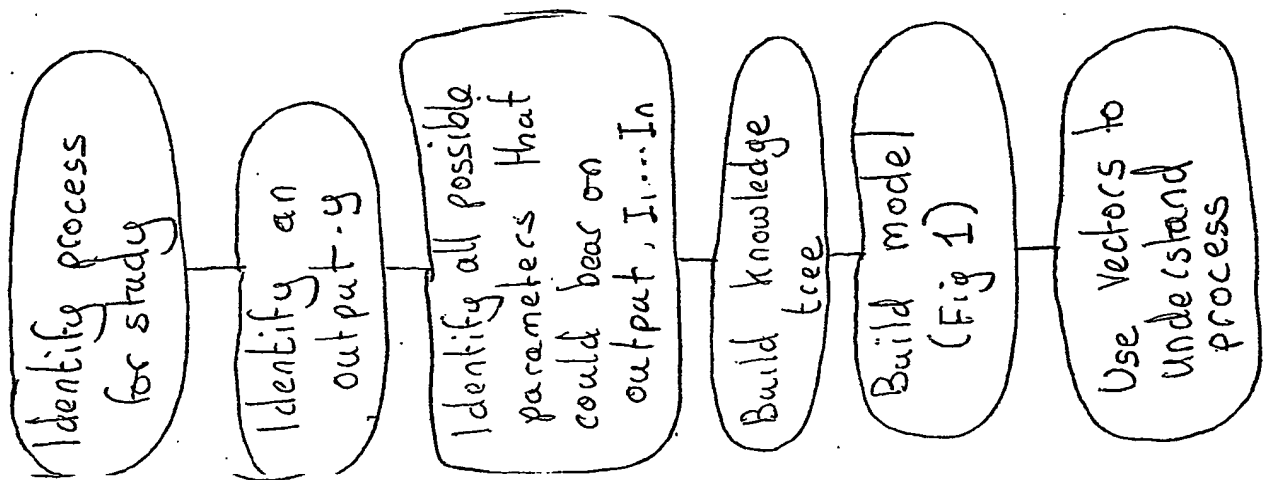 Identify process
for study
Identify an
output.y
Identify all possible
parameters that
could bear on
output, I1...In
Build knowledge
tree
Build model
(Fig 1)
Use vectors to
understand
process